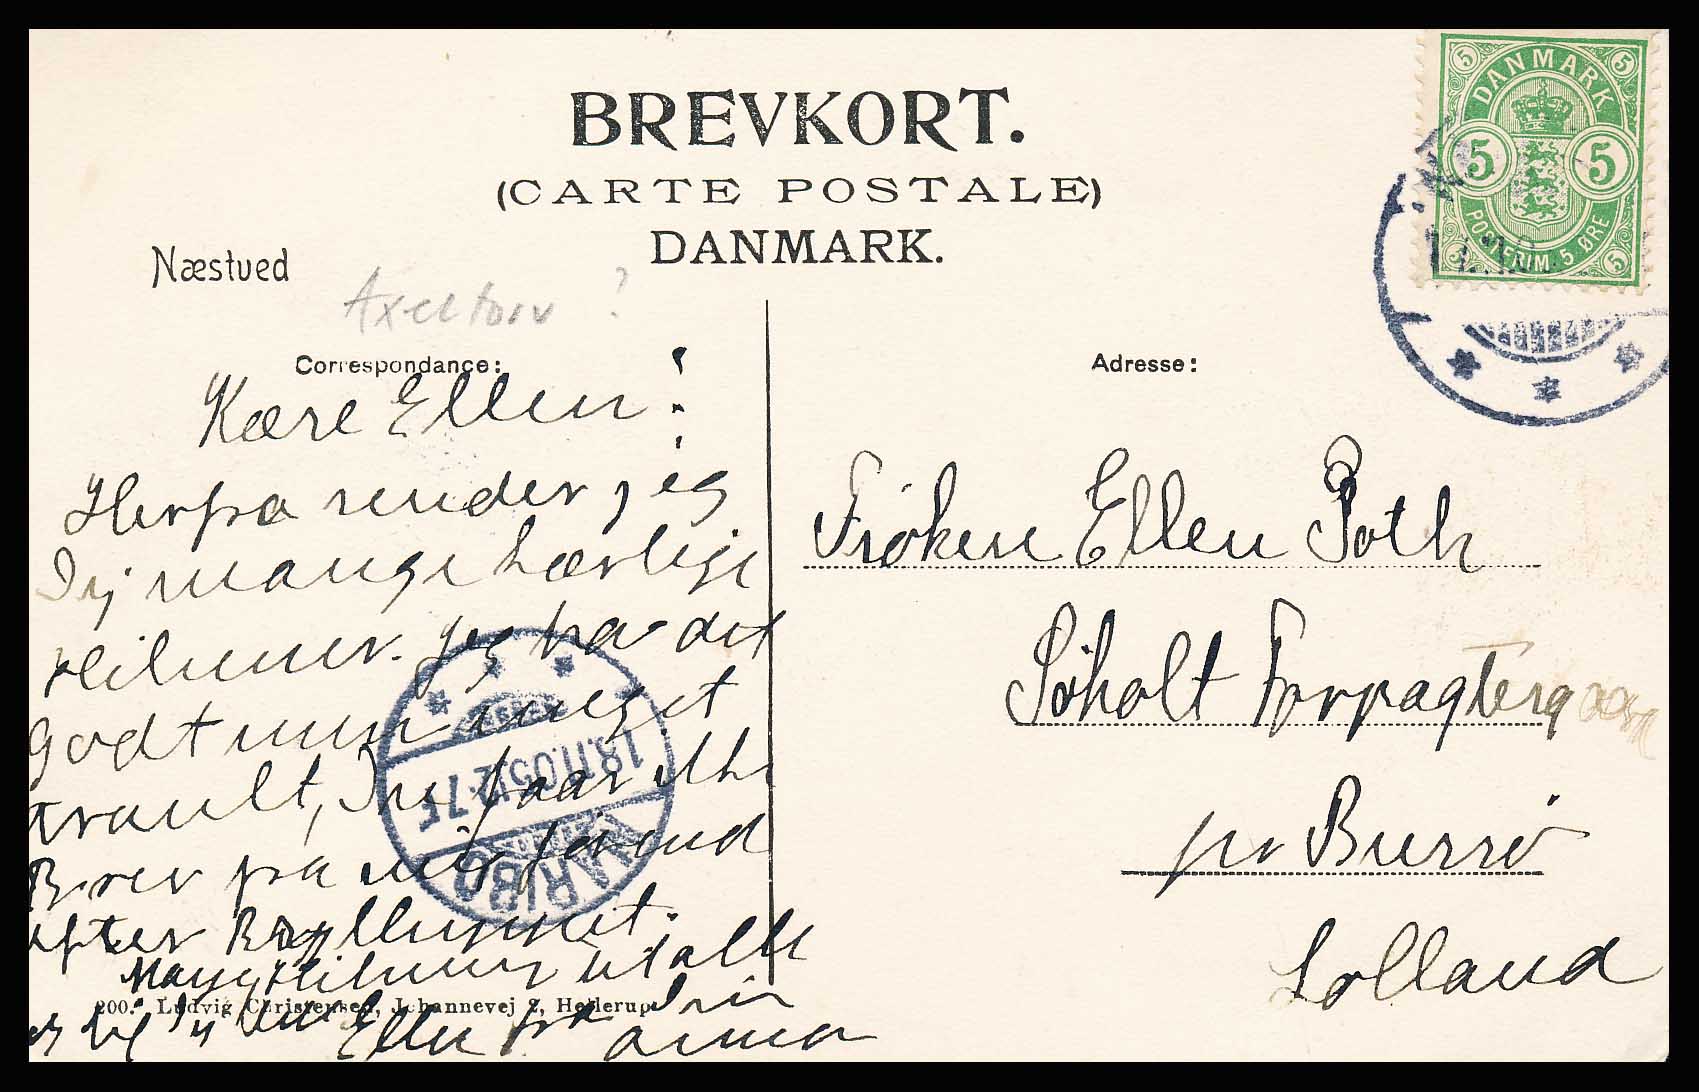 BREVKORT.
(CARTE POSTALE)
DANMARK.
DANMARK
5 5
POSTFRIM. 5 ØRE
Næstved
Axeltorv ?
Correspondance:
Adresse:
Kære Ellen!
Herfra sender jeg
Dig mange kærlige
Hilsner. Jeg har det
godt men meget
travlt, Du faar ikke
Brev fra mig førend
efter Brylluppet.
Mange Hilsner til alle
Ellen fra Din
Anna
Frøken Ellen Poth
Søholt Forpagtergaard
pr Bursø
Lolland
MARIBO
18.11.05
200. Ludvig Christensen, Johannevej 2, Hellerup.